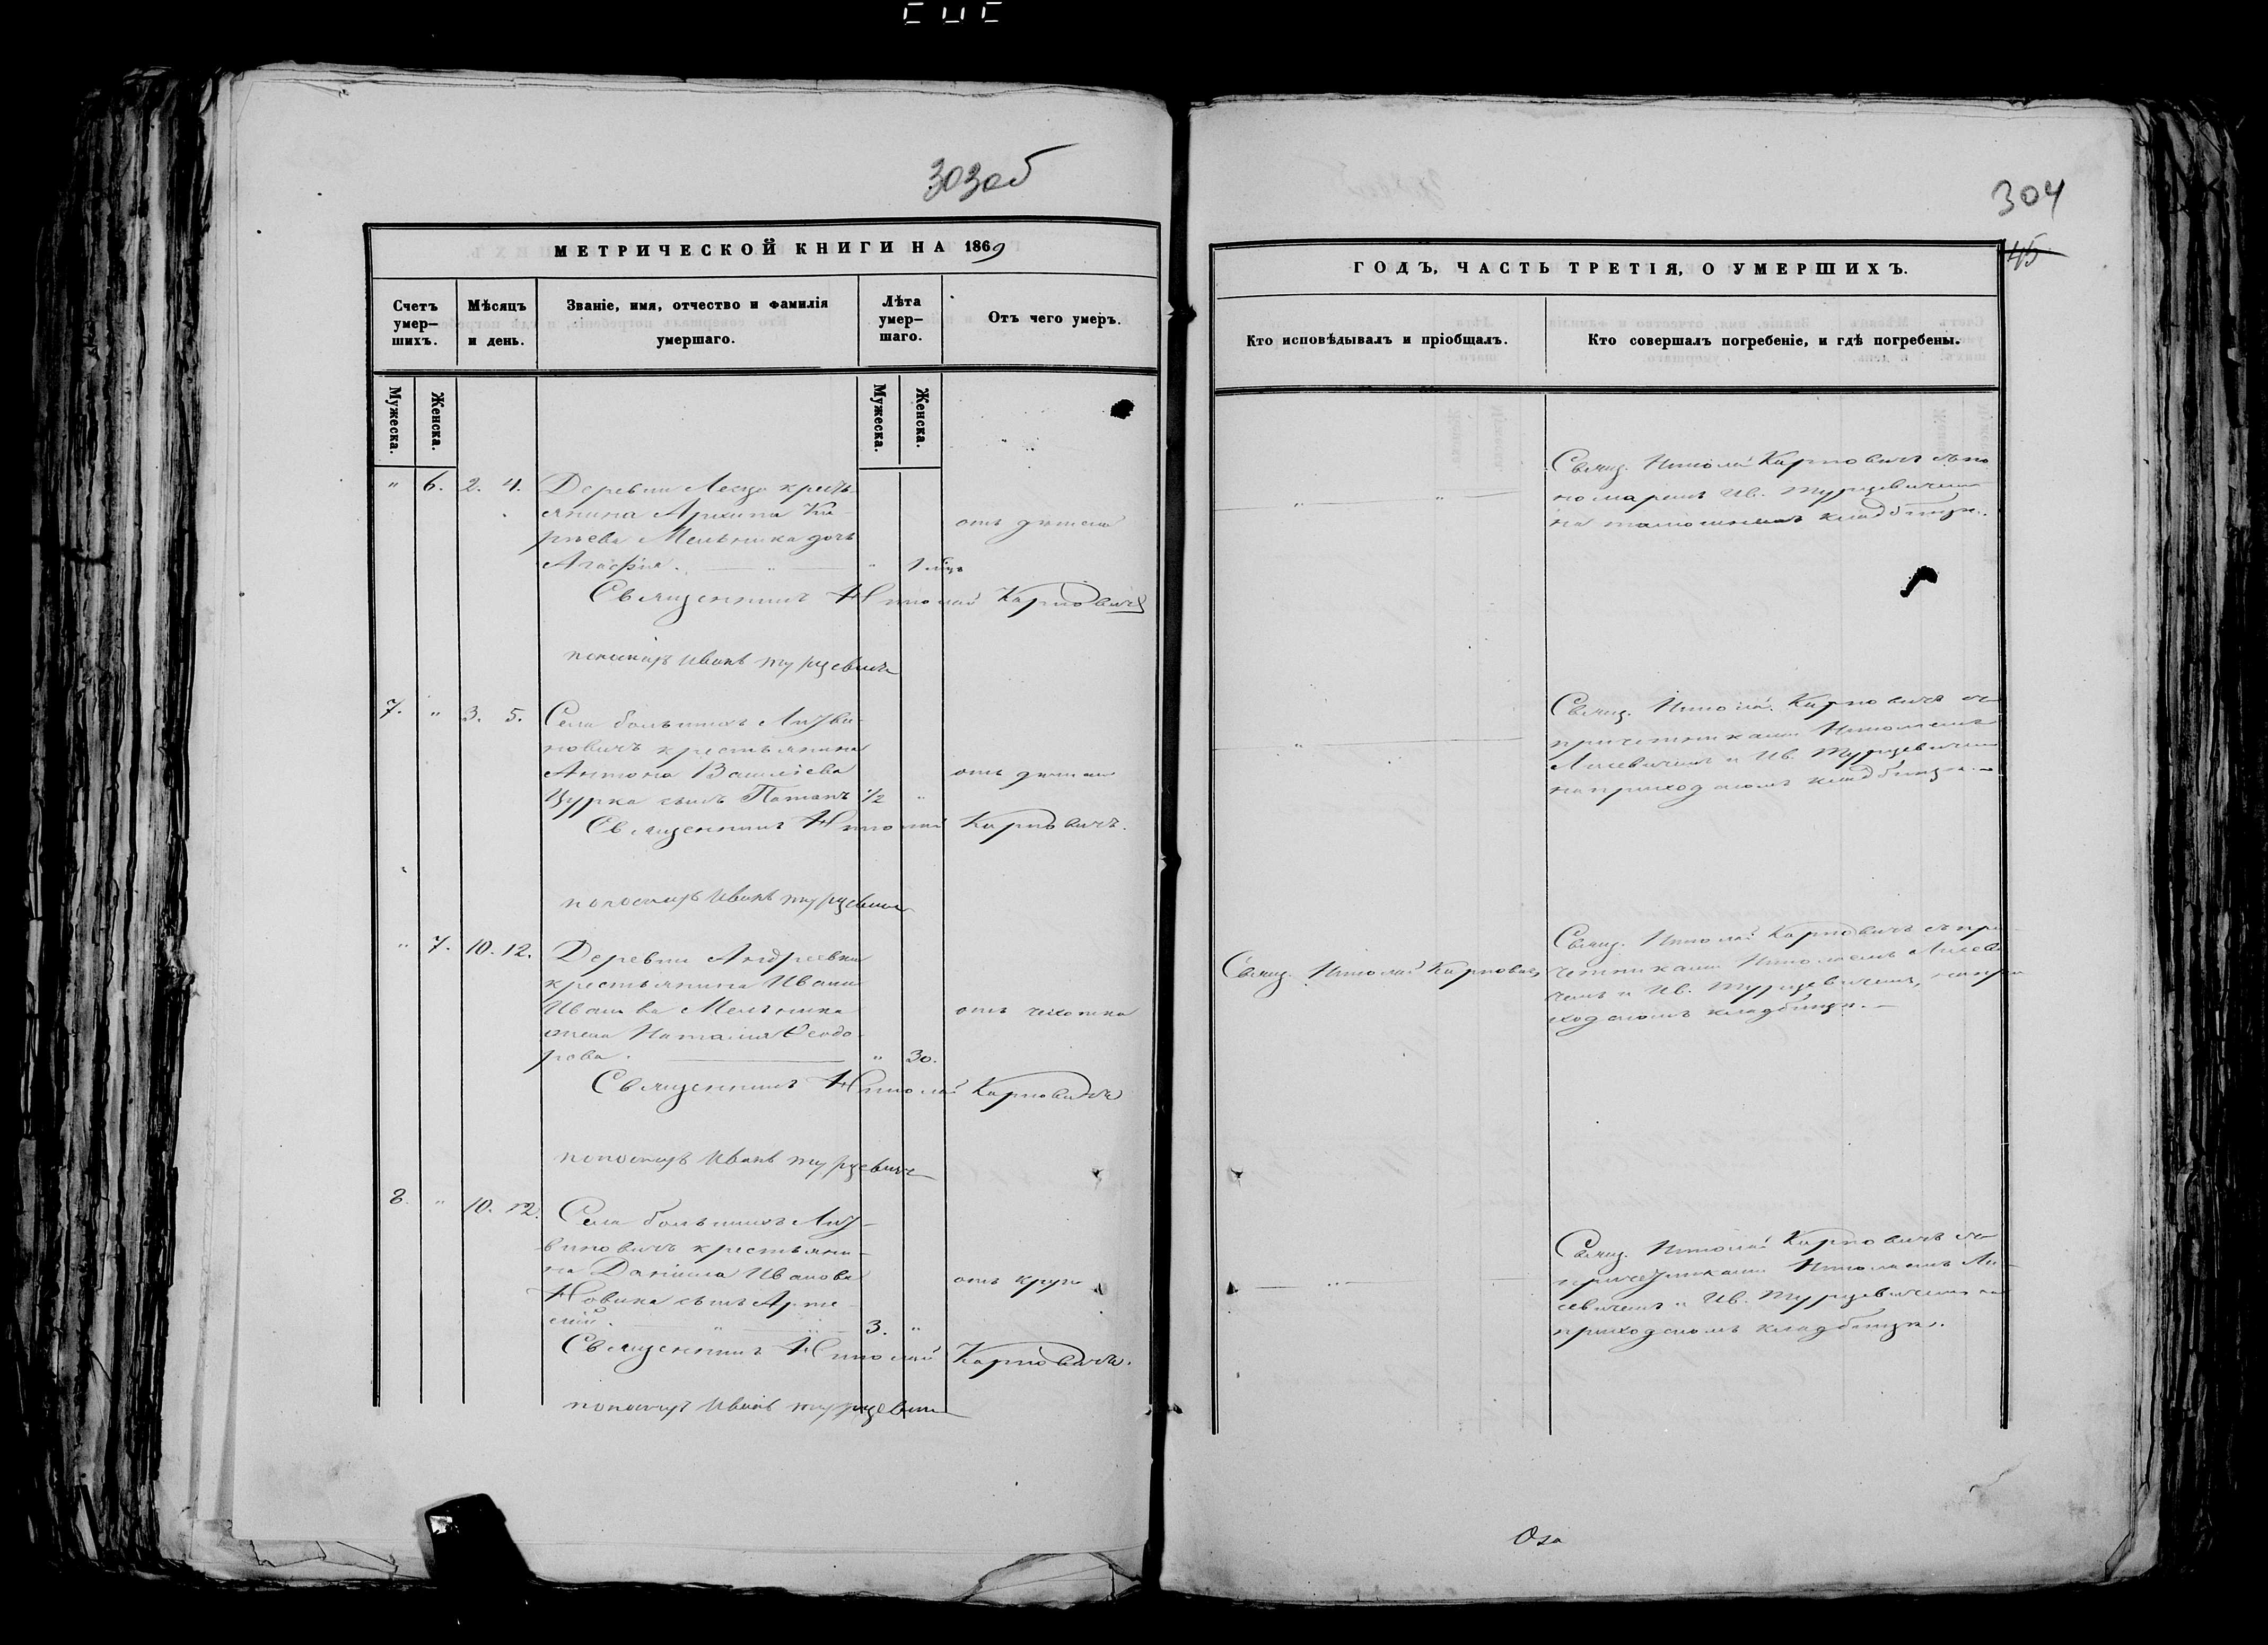 303об
МЕТРИЧЕСКОЙ КНИГИ НА 1869
Счетъ умер-шихъ.
Мѣсяцъ и день.
Званіе, имя, отчество и фамилія умершаго.
Лѣта умер-шаго.
Отъ чего умеръ.
Мужеска.
Женска.
Мужеска.
Женска.
" 6. 2. 4. Деревни
янина Архипа Ка-
рпева Мельника дочь
Агафія. " 1
отъ
Священникъ Николай Карповичъ
Иванъ Турцевичъ
7. " 3. 5. Села большихъ
новичъ крестьянина
Антона Васильева
Цурка сынъ 1/2 "
отъ
Священникъ Николай Карповичъ.
Иванъ Турцевичъ
" 7. 10. 12. Деревни Андреевки
крестьянина Ивана
Иванова Мельника
жена Наталія Ѳеодо-
рова. " 30.
отъ чахотки
Священникъ Николай Карповичъ
Иванъ Турцевичъ
8. " 10. 12. Села большихъ
виновичъ крестьяни-
на Даніила Иванова
Новика сынъ Арте-
мій. 3. "
отъ крупа
Священникъ Николай Карповичъ.
Иванъ Турцевичъ
304
45
ГОДЪ, ЧАСТЬ ТРЕТІЯ, О УМЕРШИХЪ.
Кто исповѣдывалъ и пріобщалъ.
Кто совершалъ погребеніе, и гдѣ погребены.
Свящ. Николай Карповичъ съ по
номаремъ Ив. Турцевичемъ
на кладбищѣ.
Свящ. Николай Карповичъ съ
причетниками Николаемъ
и Ив. Турцевичемъ
на приходскомъ кладбищѣ.
Свящ. Николай Карповичъ
Свящ. Николай Карповичъ съ при
четниками Николаемъ
чемъ и Ив. Турцевичемъ, на при
ходскомъ кладбищѣ.
Свящ. Николай Карповичъ съ
причетниками Николаемъ
севичемъ и Ив. Турцевичемъ на
приходскомъ кладбищѣ.